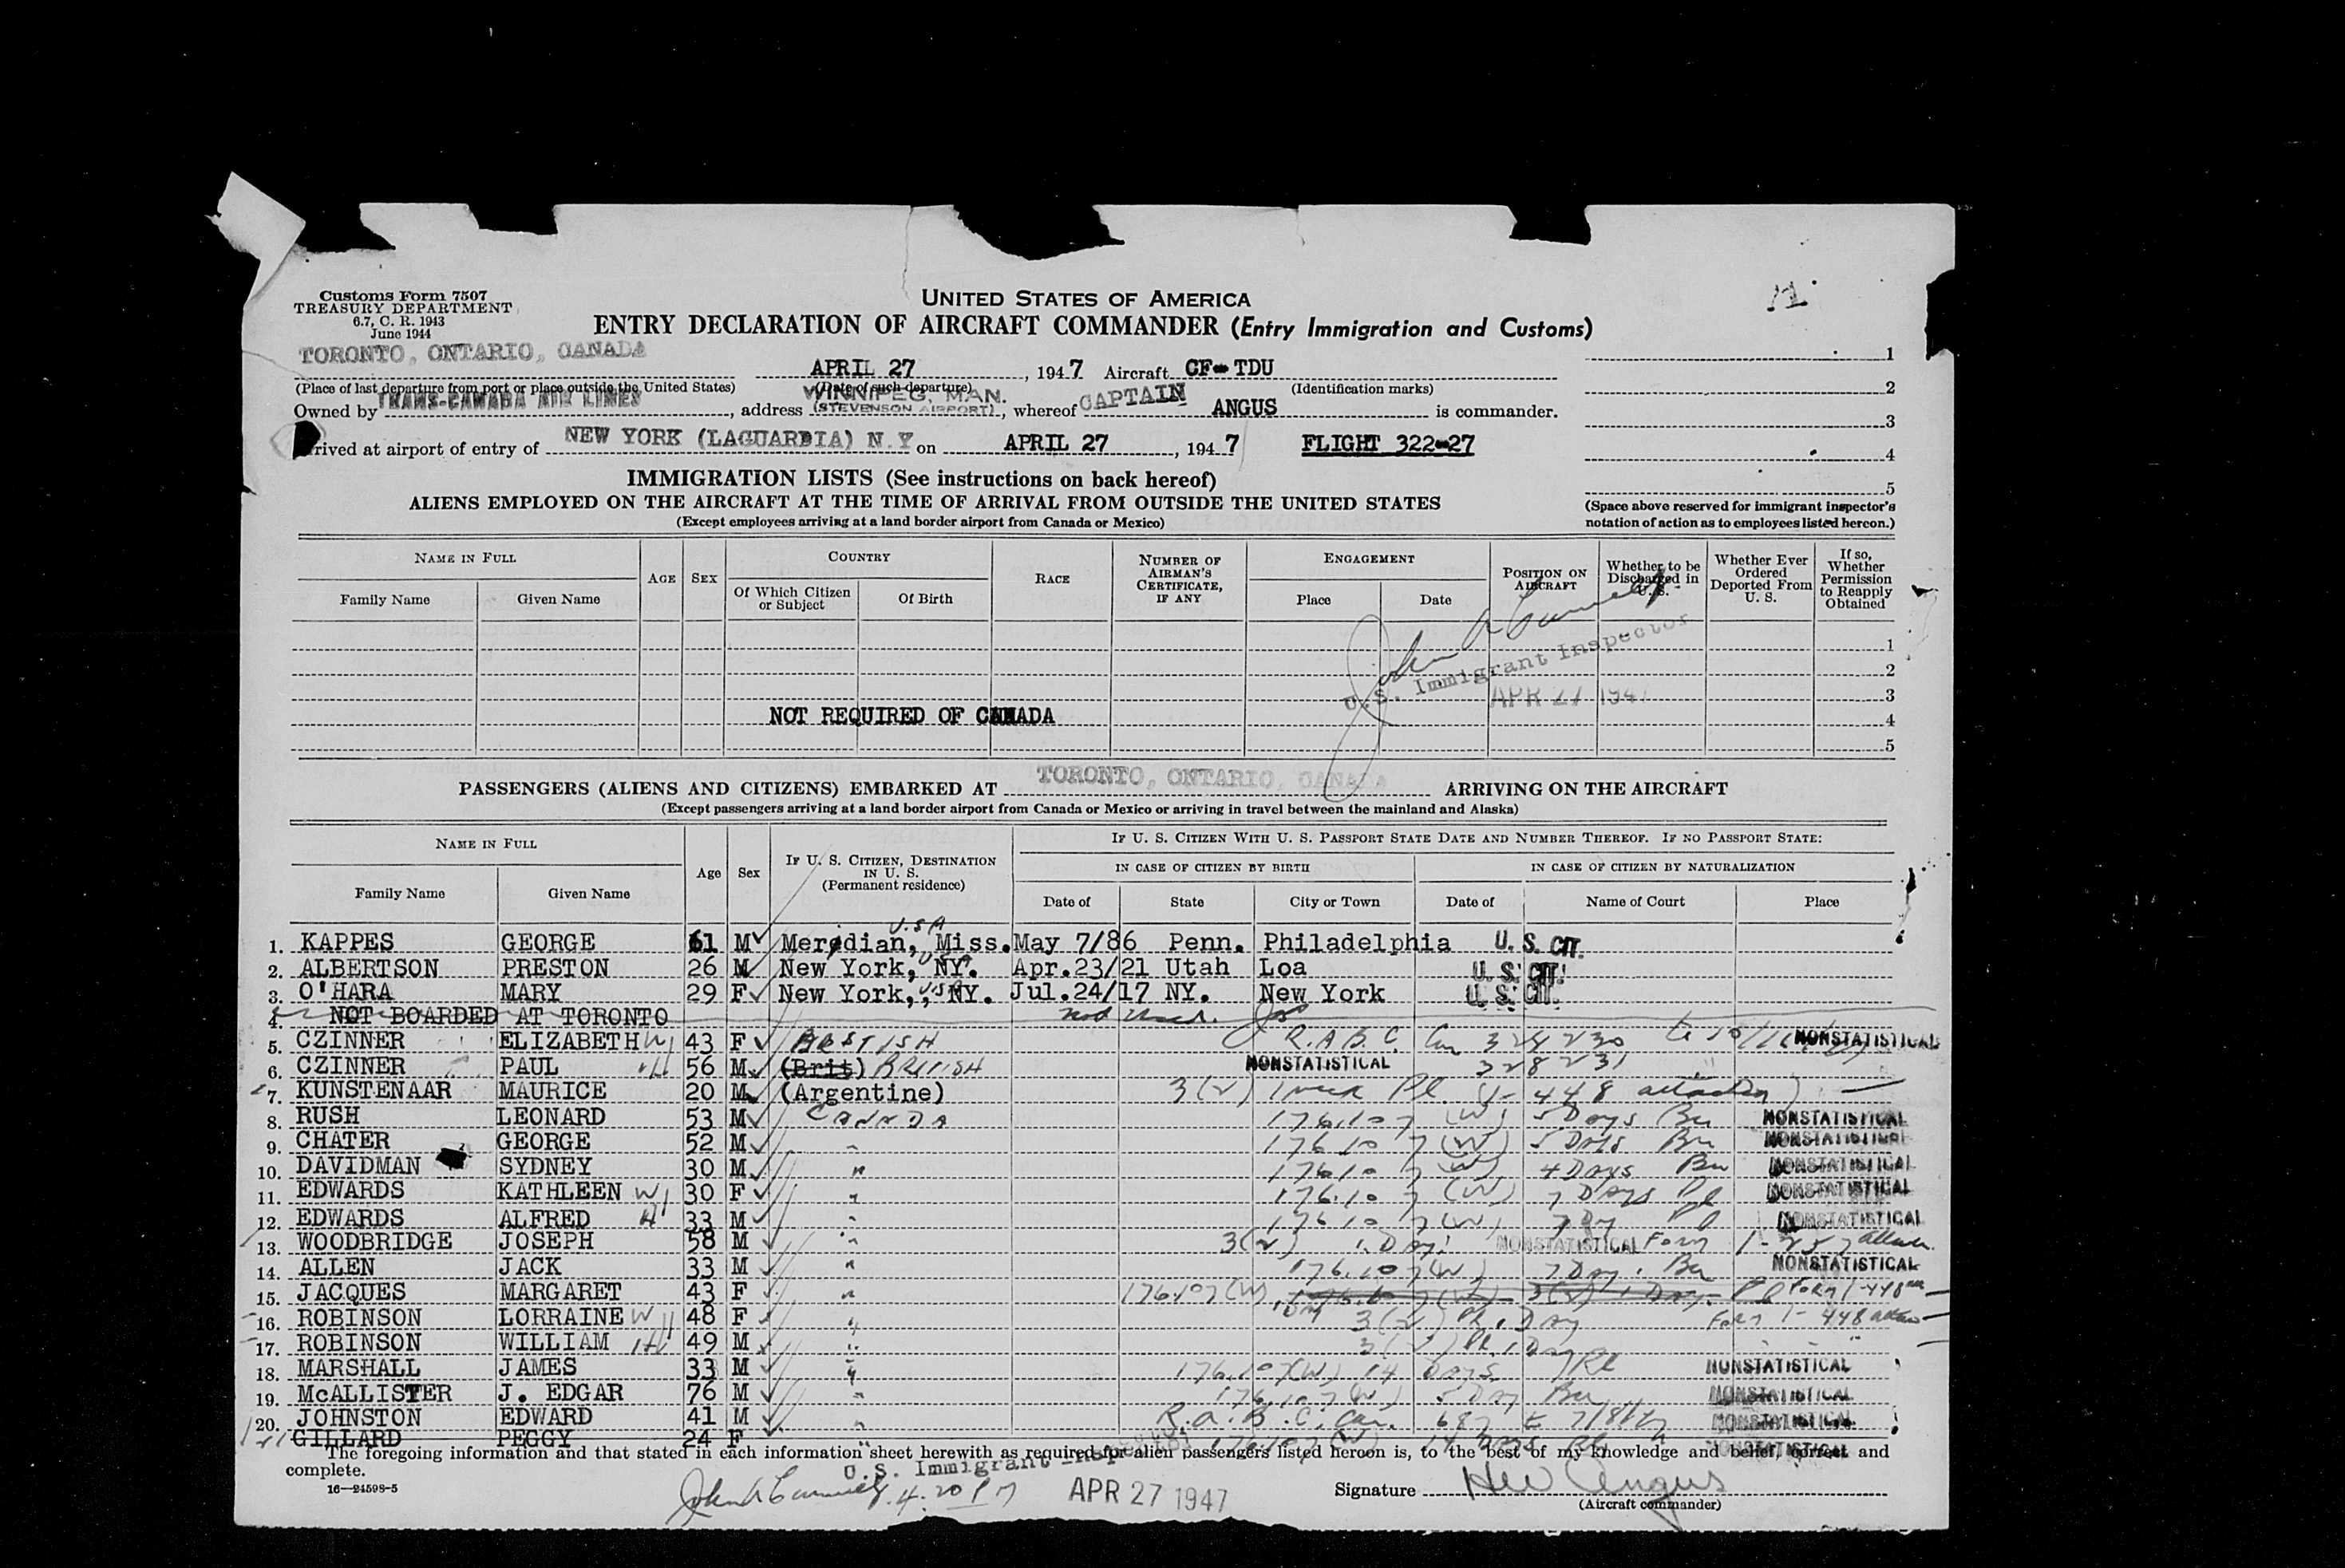 Customs Form 7507
TREASURY DEPARTMENT
6.7, C. R. 1943
June 1944
UNITED STATES OF AMERICA
ENTRY DECLARATION OF AIRCRAFT COMMANDER (Entry Immigration and Customs)
TORONTO, ONTARIO, CANADA APRIL 27, 1947 Aircraft CF-TDU
(Place of last departure from port or place outside the United States) (Date of such departure) (Identification marks)
WINNIPEG, MAN.
Owned by TRANS-CANADA AIR LINES, address (STEVENSON AIRPORT), whereof CAPTAIN ANGUS is commander.
rrived at airport of entry of NEW YORK (LAGUARDIA) N.Y on APRIL 27, 1947 FLIGHT 322-27
1
2
3
4
5
IMMIGRATION LISTS (See instructions on back hereof)
ALIENS EMPLOYED ON THE AIRCRAFT AT THE TIME OF ARRIVAL FROM OUTSIDE THE UNITED STATES
(Except employees arriving at a land border airport from Canada or Mexico)
(Space above reserved for immigrant inspector's
notation of action as to employees listed hereon.)
NAME IN FULL
Family Name Given Name
AGE SEX
COUNTRY
Of Which Citizen or Subject Of Birth
RACE
NUMBER OF AIRMAN'S CERTIFICATE, IF ANY
ENGAGEMENT
Place Date
POSITION ON AIRCRAFT
Whether to be Discharged in U. S.
Whether Ever Ordered Deported From U. S.
If so, Whether Permission to Reapply Obtained
1
2
3
4
5
U.S. Immigrant Inspector
APR 27 1947
NOT REQUIRED OF CANADA
PASSENGERS (ALIENS AND CITIZENS) EMBARKED AT TORONTO, ONTARIO, CANADA ARRIVING ON THE AIRCRAFT
(Except passengers arriving at a land border airport from Canada or Mexico or arriving in travel between the mainland and Alaska)
NAME IN FULL
Family Name Given Name
Age Sex
IF U. S. CITIZEN, DESTINATION IN U. S. (Permanent residence)
IF U. S. CITIZEN WITH U. S. PASSPORT STATE DATE AND NUMBER THEREOF. IF NO PASSPORT STATE:
IN CASE OF CITIZEN BY BIRTH IN CASE OF CITIZEN BY NATURALIZATION
Date of State City or Town Date of Name of Court Place
1. KAPPES GEORGE 61 M Meridian, Miss. U.S.A May 7/86 Penn. Philadelphia U. S. CIT.
2. ALBERTSON PRESTON 26 M New York, NY. Apr.23/21 Utah Loa U. S. CIT.
3. O'HARA MARY 29 F New York,, NY. Jul.24/17 NY. New York U. S. CIT.
4. NOT BOARDED AT TORONTO not used.
5. CZINNER ELIZABETH W 43 F BRITISH R.A.B.C. NONSTATISTICAL
6. CZINNER PAUL H 56 M (Brit) BRITISH NONSTATISTICAL
7. KUNSTENAAR MAURICE 20 M (Argentine) 3(2) 1 week Pl
8. RUSH LEONARD 53 M CANADA 176.107(W) 5 Days Bu NONSTATISTICAL
9. CHATER GEORGE 52 M " 176.107(W) 5 Days Bu NONSTATISTICAL
10. DAVIDMAN SYDNEY 30 M " 176.107(W) 4 Days Bu NONSTATISTICAL
11. EDWARDS KATHLEEN W 30 F " 176.107(W) 7 Days Pl NONSTATISTICAL
12. EDWARDS ALFRED H 33 M " 176.107(W) 7 Day Pl NONSTATISTICAL
13. WOODBRIDGE JOSEPH 58 M " 3(2) 1 Day NONSTATISTICAL Form
14. ALLEN JACK 33 M " 176.107(W) 7 Day. Bu NONSTATISTICAL
15. JACQUES MARGARET 43 F " 176.107(W) Pl Form 1-448
16. ROBINSON LORRAINE W 48 F " 3(2) Pl 1 Day Form 1-448
17. ROBINSON WILLIAM H 49 M " 3(2) Pl 1 Day " "
18. MARSHALL JAMES 33 M " 176.107(W) 14 Days Pl NONSTATISTICAL
19. McALLISTER J. EDGAR 76 M " 176.107(W) 5 Day Bu NONSTATISTICAL
20. JOHNSTON EDWARD 41 M " R.A.B.C. Can. 687 NONSTATISTICAL
21 GILLARD PEGGY 24 F " 176.107(W) 14 Days Pl NONSTATISTICAL
The foregoing information and that stated in each information sheet herewith as required for alien passengers listed hereon is, to the best of my knowledge and belief, correct and
complete.
U.S. Immigrant Inspector
16—24598-5
4:20 PM APR 27 1947 Signature Angus
(Aircraft commander)